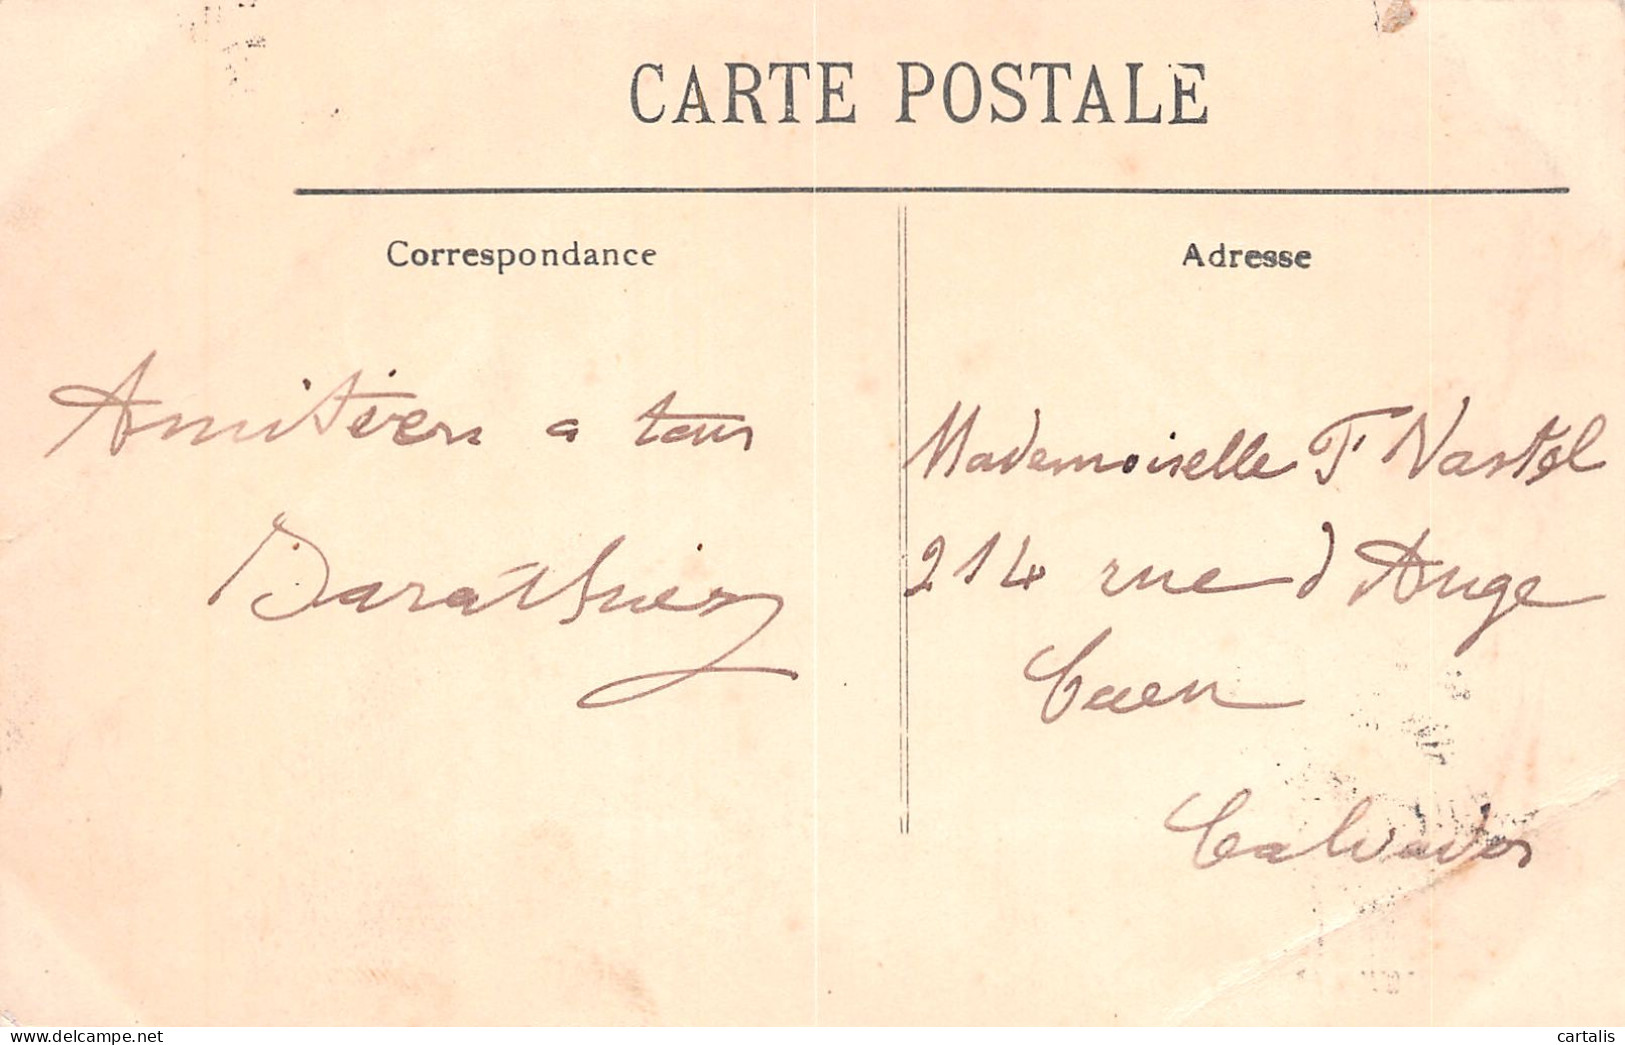 CARTE POSTALE
Correspondance
Amitiers a tous
Adresse
Mademoiselle F Nastol
214 rue d Auge
Caen
Calvados
www.delcampe.net
cartalis